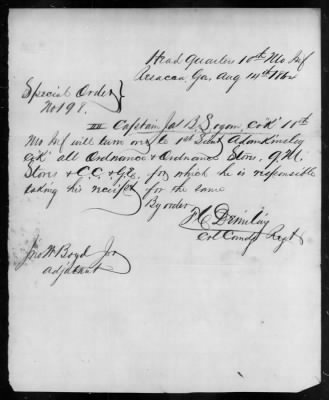 Head Quarters 10th Mo. Inf
Resacan, Ga, Aug 14th 1864
Special Order }
No 198. }
III Captain Jas B. Co "K" 10th
Mo Inf will turn over to 1st Lieut Adam
Co "K" all Ordnance & Ordnance Stores, Q.M.
Stores & C.C. & G.E. for which he is responsible
taking his receipt for the same
By order
F C Deimling
Col Comdg Regt
Jno W Boyd Jr
Adjutant